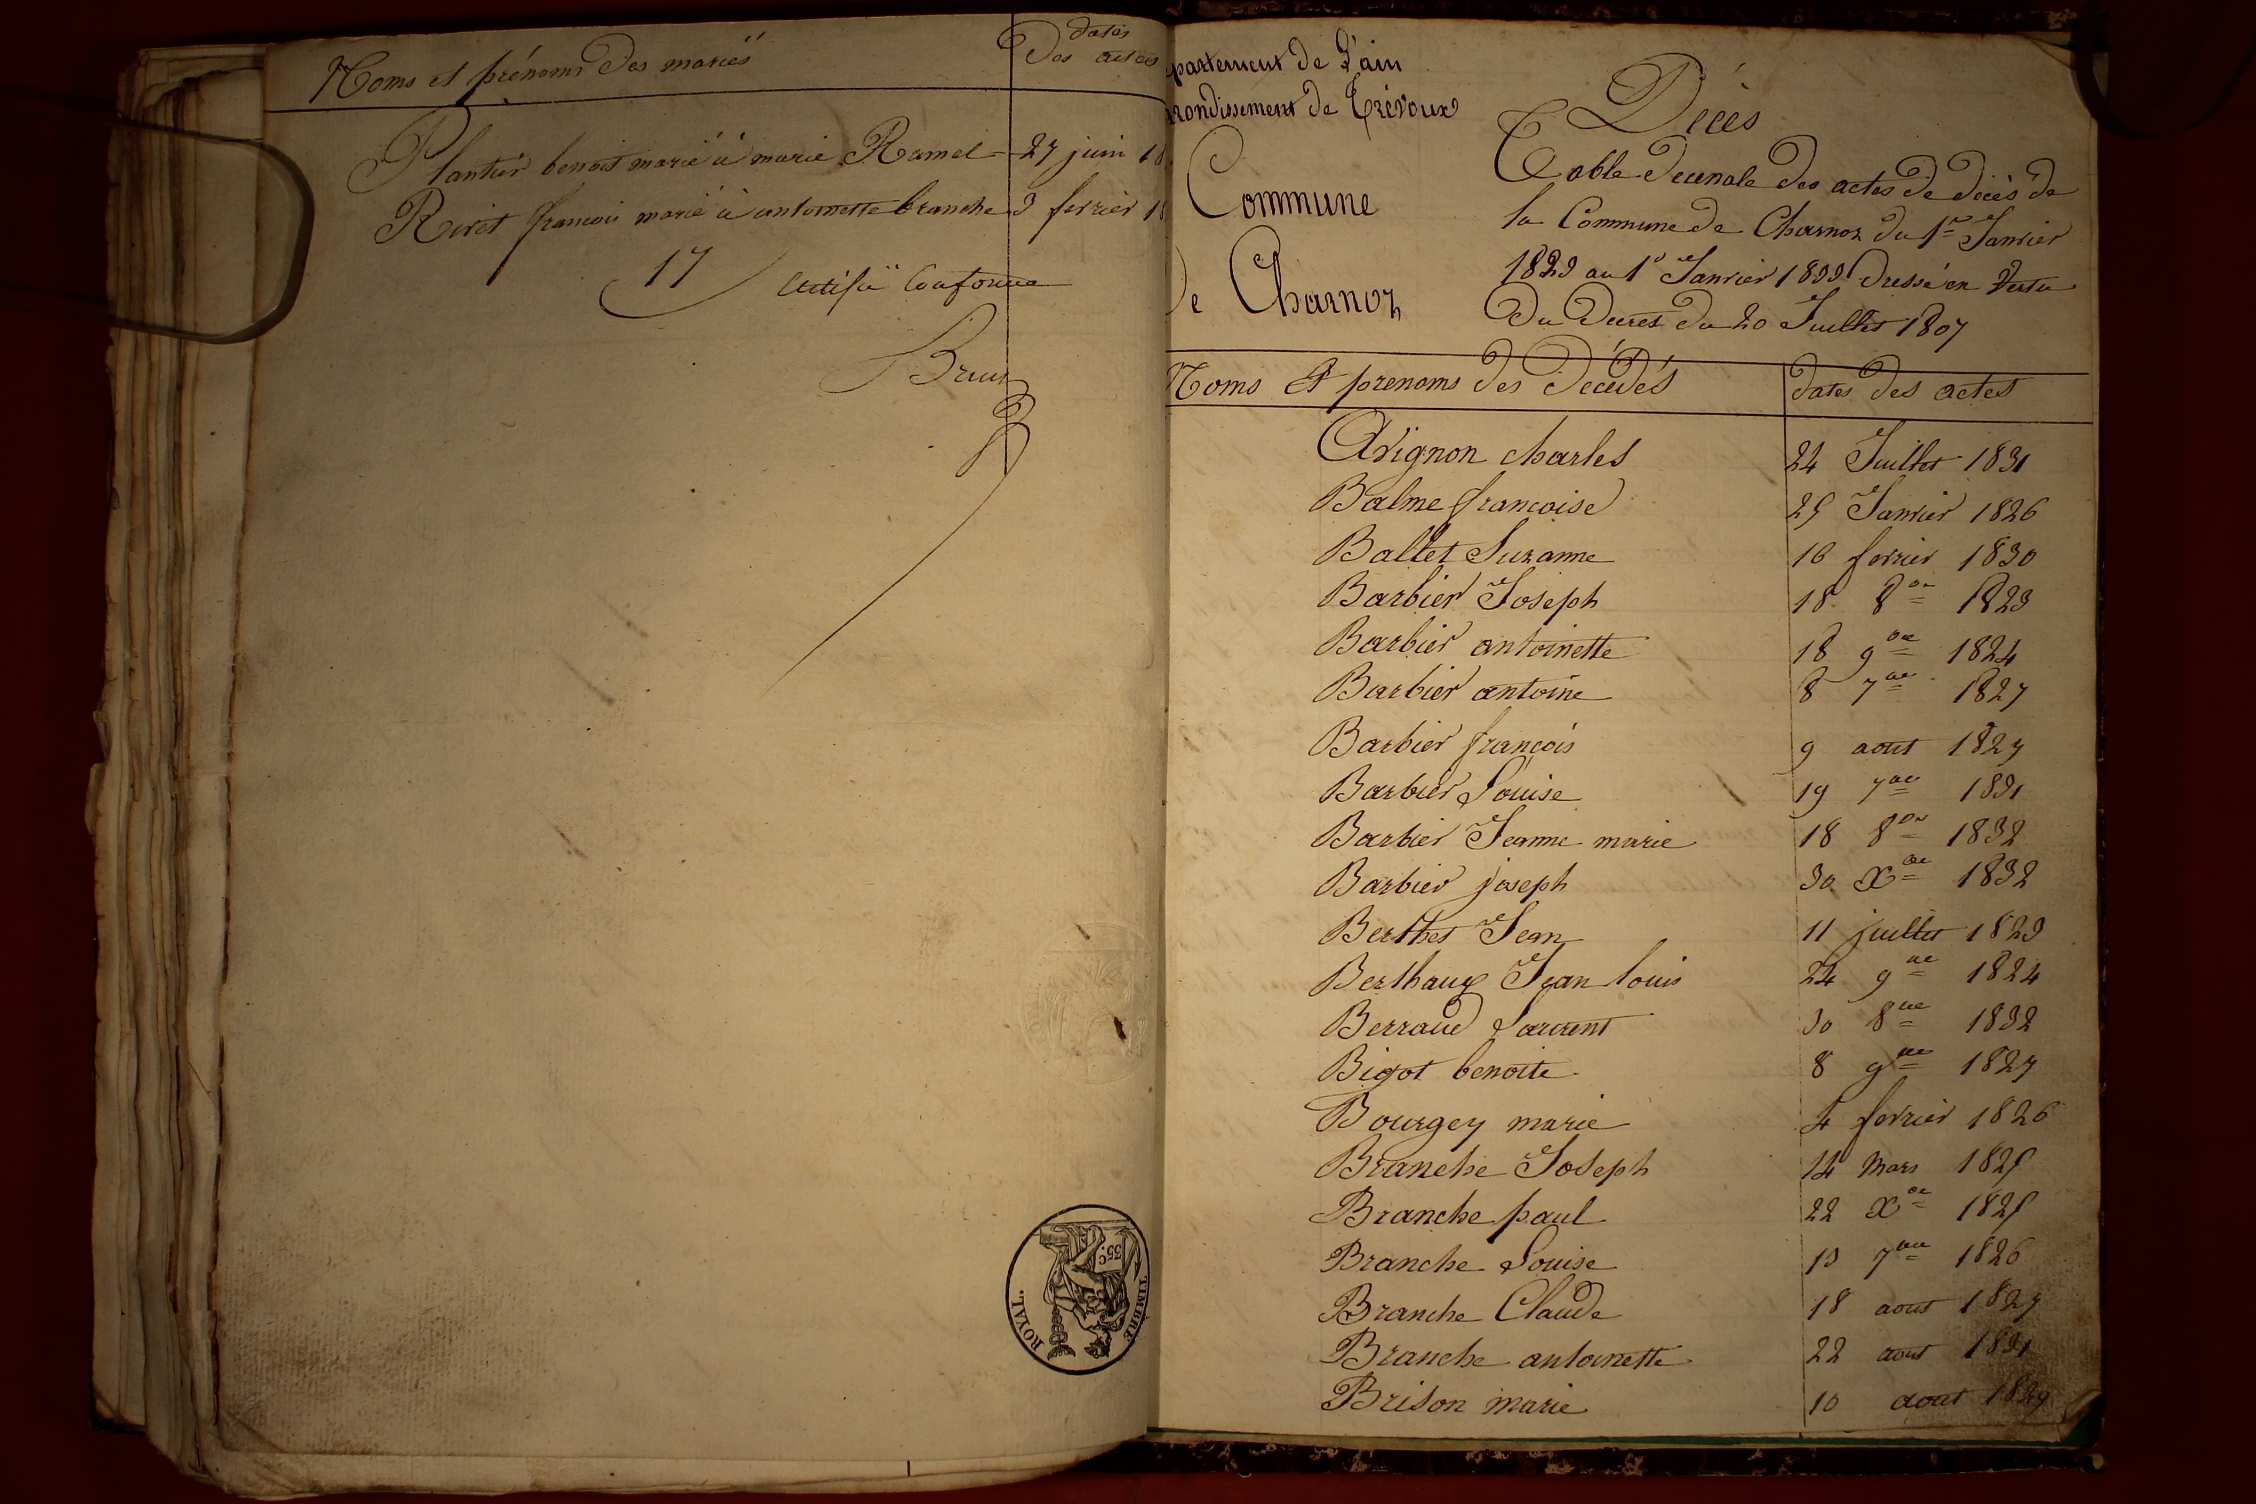 Noms et prénoms des mariés
dates
des actes
Plantier benoit marié à marie Ramel 27 juin 18
Rivet francois marié à antoinette branche 3 fevrier 18
17
Certifié Conforme
Brun
TIMBRE ROYAL.
55 c
epartement de l'ain
rrondissement de Trévoux
Commune
de Charnoz
Décès
Table decenale des actes de décès de
la Commune de Charnoz du 1er Janvier
1823 au 1er Janvier 1833 dressé en vertu
du decret du 20 Juillet 1807
Noms et prenoms des décédés dates des actes
Avignon charles 24 Juillet 1831
Balme francoise 25 Janvier 1826
Ballet Suzanne 16 fevrier 1830
Barbier Joseph 18 8bre 1823
Barbier antoinette 18 9bre 1824
Barbier antoine 8 7bre 1827
Barbier françois 9 aout 1827
Barbier Louise 19 7bre 1831
Barbier Jeanne marie 18 8bre 1832
Barbier joseph 30 Xbre 1832
Berthet Jean 11 juillet 1823
Berthaux Jean louis 24 9bre 1824
Berraud Laurent 30 8bre 1832
Bigot benoite 8 9bre 1827
Bourgey marie 4 fevrier 1826
Branche Joseph 14 Mars 1825
Branche paul 22 Xbre 1825
Branche Louise 13 7bre 1826
Branche Claude 18 aout 1827
Branche antoinette 22 aout 1831
Brison marie 10 aout 1829